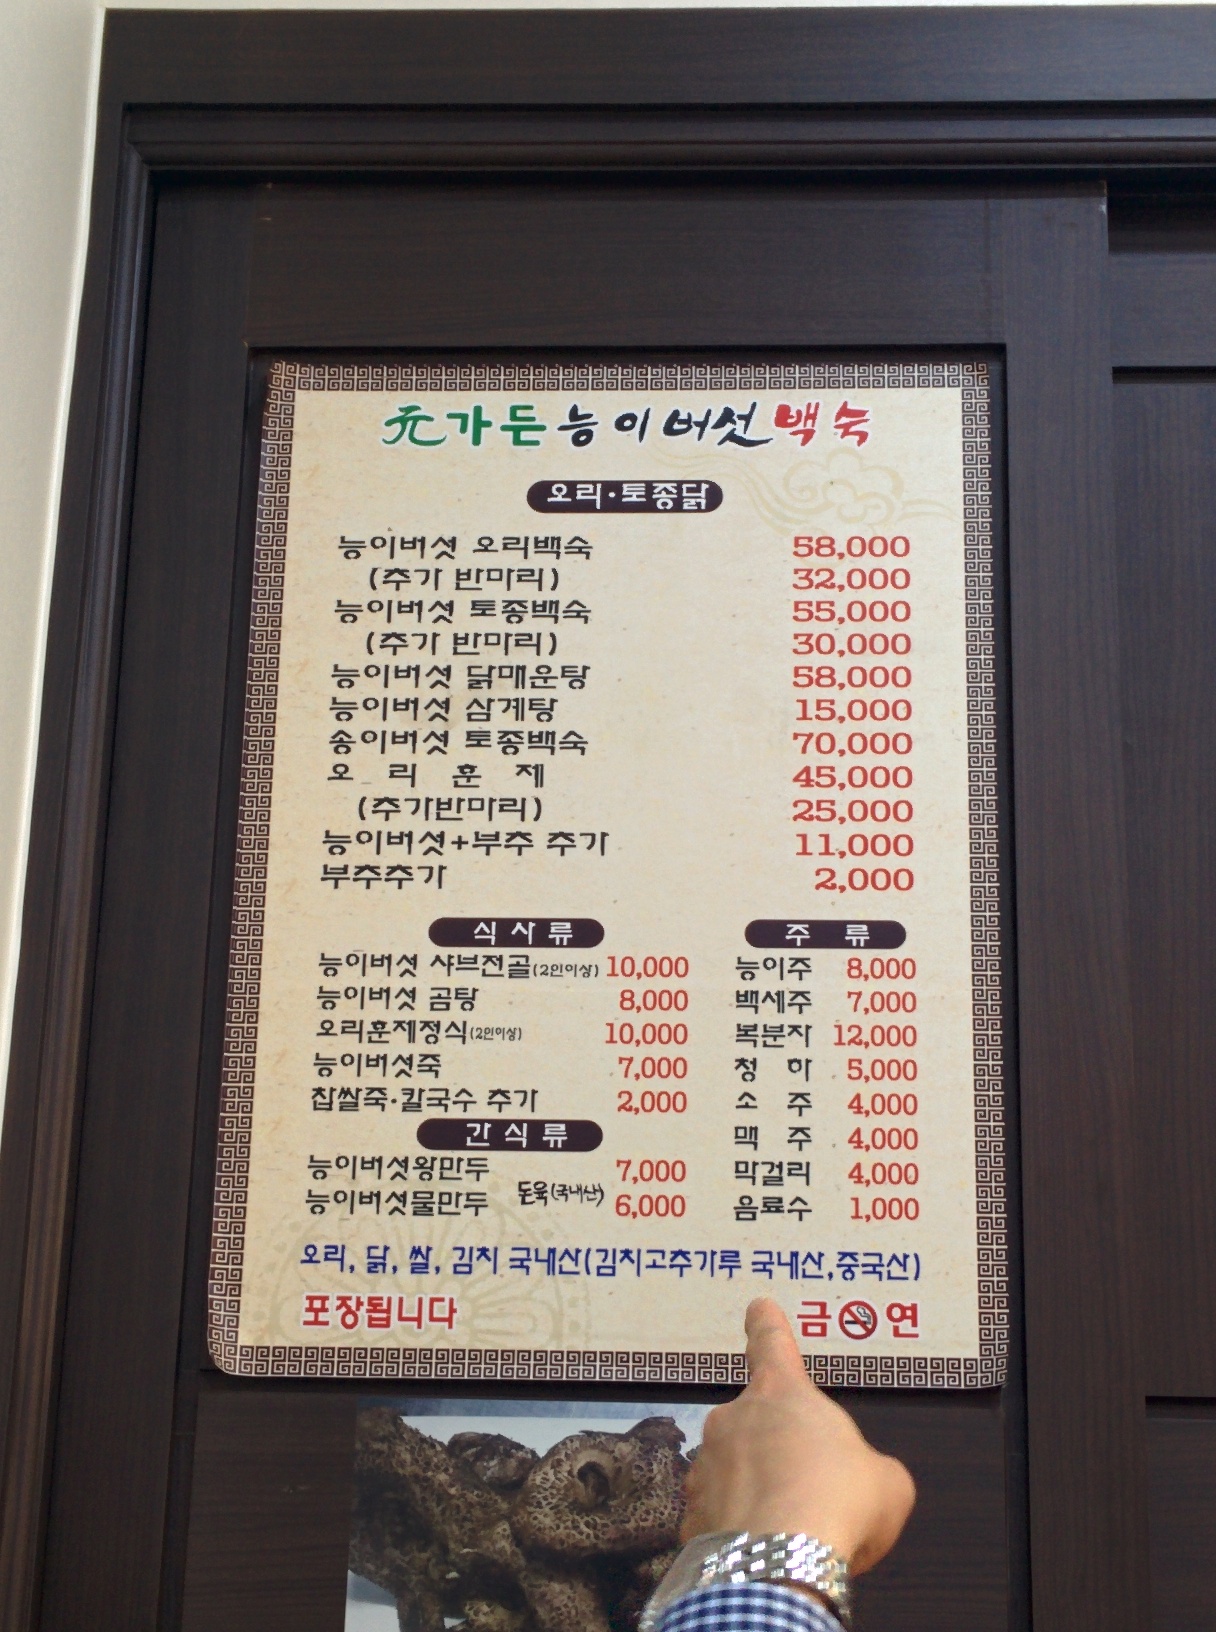 元가든능이버섯백숙
오리·토종닭
능이버섯 오리백숙 58,000
(추가 반마리) 32,000
능이버섯 토종백숙 55,000
(추가 반마리) 30,000
능이버섯 닭매운탕 58,000
능이버섯 삼계탕 15,000
송이버섯 토종백숙 70,000
오 리 훈 제 45,000
(추가반마리) 25,000
능이버섯+부추 추가 11,000
부추추가 2,000
식 사 류
능이버섯 샤브전골(2인이상) 10,000
능이버섯 곰탕 8,000
오리훈제정식(2인이상) 10,000
능이버섯죽 7,000
찹쌀죽·칼국수 추가 2,000
간 식 류
능이버섯왕만두 7,000
돈육(국내산)
능이버섯물만두 6,000
주 류
능이주 8,000
백세주 7,000
복분자 12,000
청 하 5,000
소 주 4,000
맥 주 4,000
막걸리 4,000
음료수 1,000
오리, 닭, 쌀, 김치 국내산(김치고추가루 국내산,중국산)
포장됩니다 금 연